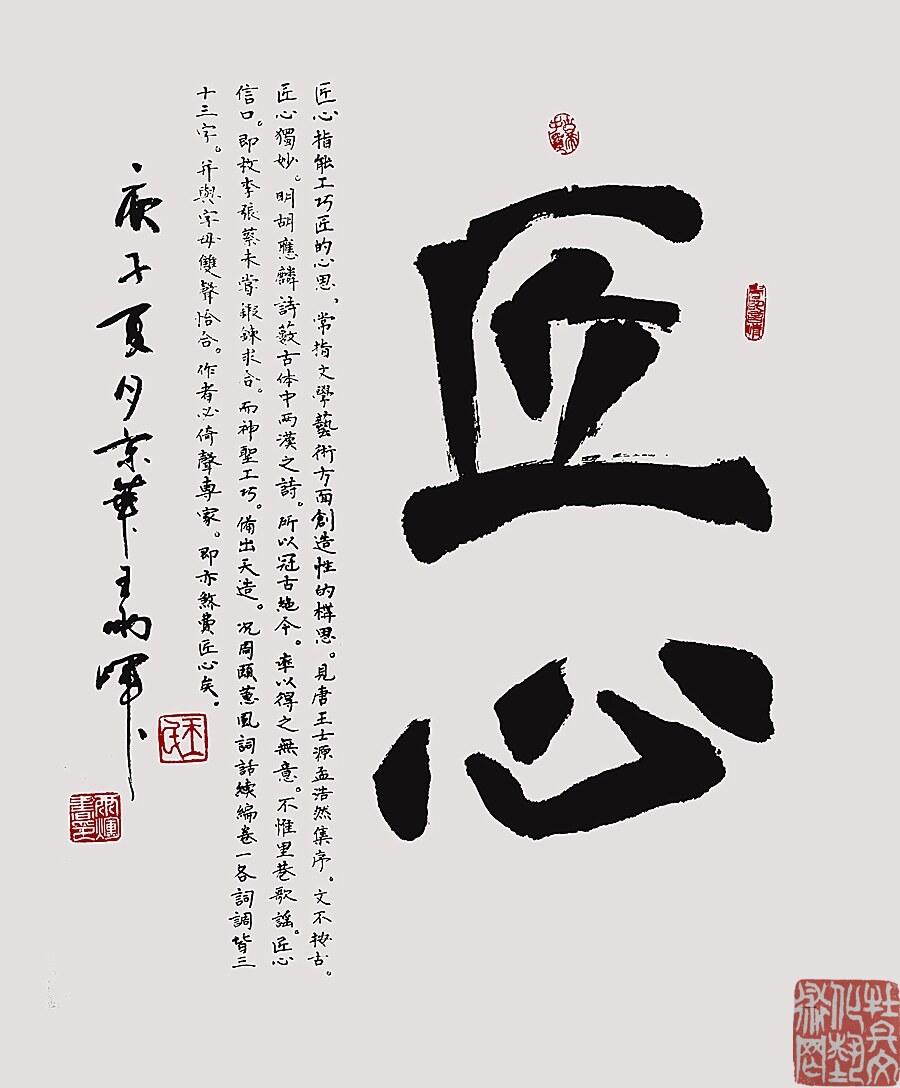 匠心
匠心指能工巧匠的心思。常指文學藝術方面創造性的構思。見唐王士源孟浩然集序。文不按古。
匠心獨妙。明胡應麟詩藪古体中兩漢之詩。所以冠古絶今。率以得之無意。不惟里巷歌謠。匠心
信口。即枚李張蔡未嘗鍛鍊求合。而神聖工巧。備出天造。况周頤蕙風詞話續編卷一各詞調皆三
十三字。并與字母雙聲恰合。作者必倚聲專家。即亦煞費匠心矣。
庚子夏月京華王炳暉